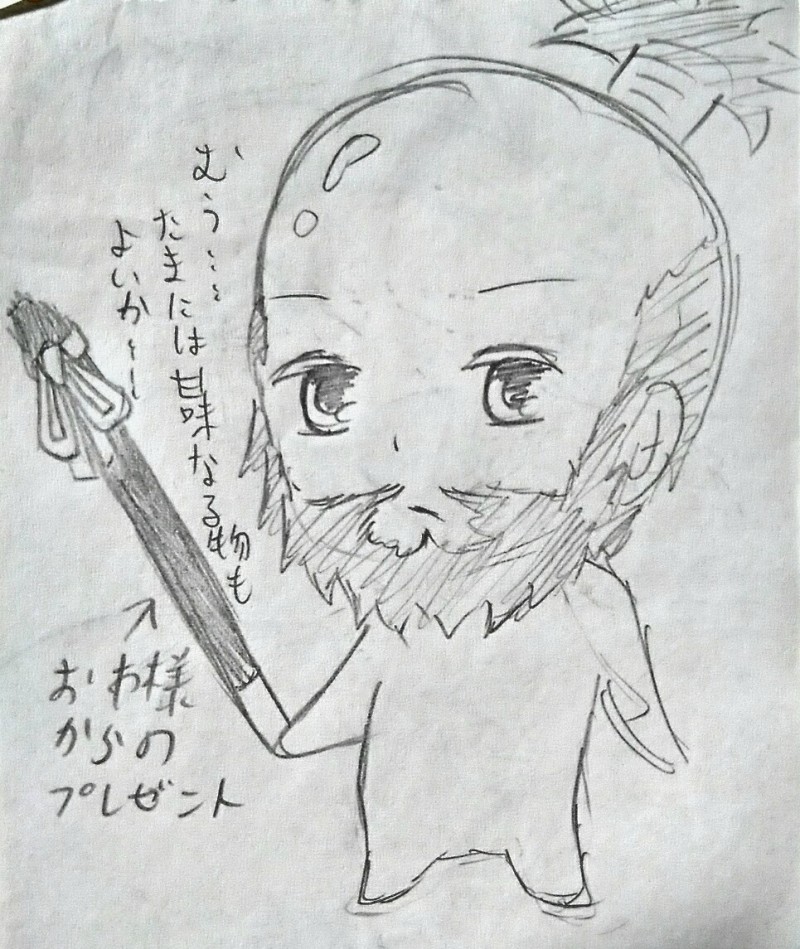 むぅ……
たまには甘味なる物も
よいか…
↑
おね様
からの
プレゼント